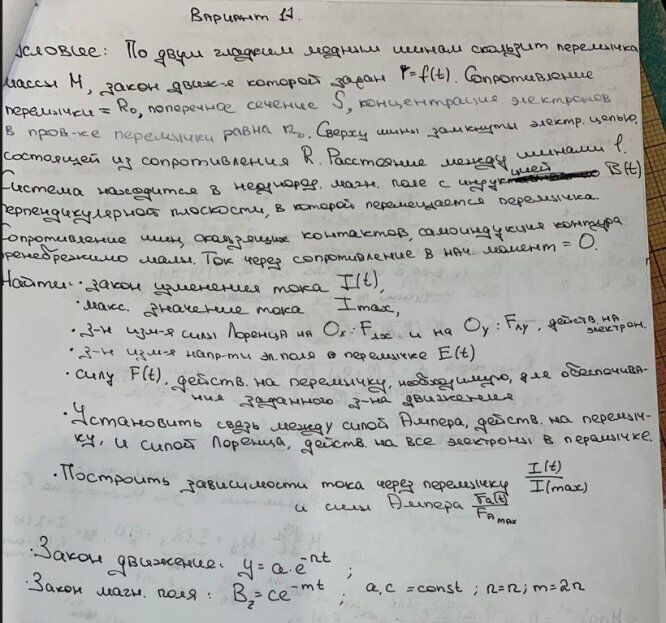 Вариант 17.
условие: По двум гладким медным шинам скользит перемычка
массы M, закон движ-е которой задан Y=f(t). Сопротивление
перемычки = R₀, поперечное сечение S, концентрация электронов
в пров-ке перемычки равна n₀. Сверху шины замкнуты электр. цепью,
состоящей из сопротивления R. Расстояние между шинами l.
Система находится в неоднород. магн. поле с индукцией B(t)
перпендикулярной плоскости, в которой перемещается перемычка.
Сопротивление шин, скользящих контактов, самоиндукция контура
пренебрежимо малы. Ток через сопротивление в нач. момент = 0.
Найти: · закон изменения тока I(t),
· макс. значение тока Imax,
· з-н изм-я силы Лоренца на Ox: Fлx и на Oy: Fлy. действ. на электрон.
· з-н изм-я напр-ти эл. поля в перемычке E(t)
· силу F(t). действ. на перемычку, необходимую, для обеспечива-
ния заданного з-на движения
· Установить связь между силой Ампера, действ. на перемыч-
ку, и силой Лоренца, действ. на все электроны в перемычке.
· Построить зависимости тока через перемычку I(t)/I(max)
и силы Ампера Fa(t)/FAmax
· Закон движение: y = a·e^-nt ;
· Закон магн. поля : Bz = ce^-mt ; a, c = const ; n=n; m=2n